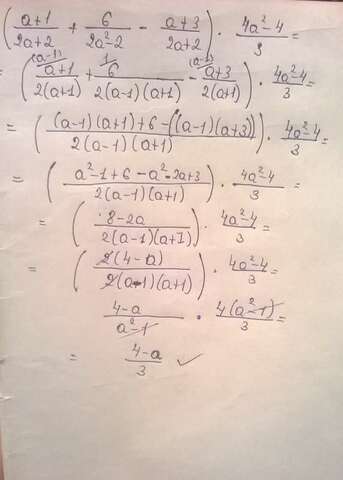 ( a+1/2a+2 + 6/2a²-2 - a+3/2a+2 ) · 4a²-4/3 =
= ( (a-1) a+1/2(a+1) + 1 6/2(a-1)(a+1) - (a-1) a+3/2(a+1) ) · 4a²-4/3 =
= ( (a-1)(a+1)+6-((a-1)(a+3))/2(a-1)(a+1) ) · 4a²-4/3 =
= ( a²-1+6-a²-2a+3/2(a-1)(a+1) ) · 4a²-4/3 =
= ( 8-2a/2(a-1)(a+1) ) · 4a²-4/3 =
= ( 2(4-a)/2(a-1)(a+1) ) · 4a²-4/3 =
4-a/a²-1 · 4(a²-1)/3 =
= 4-a/3 ✓